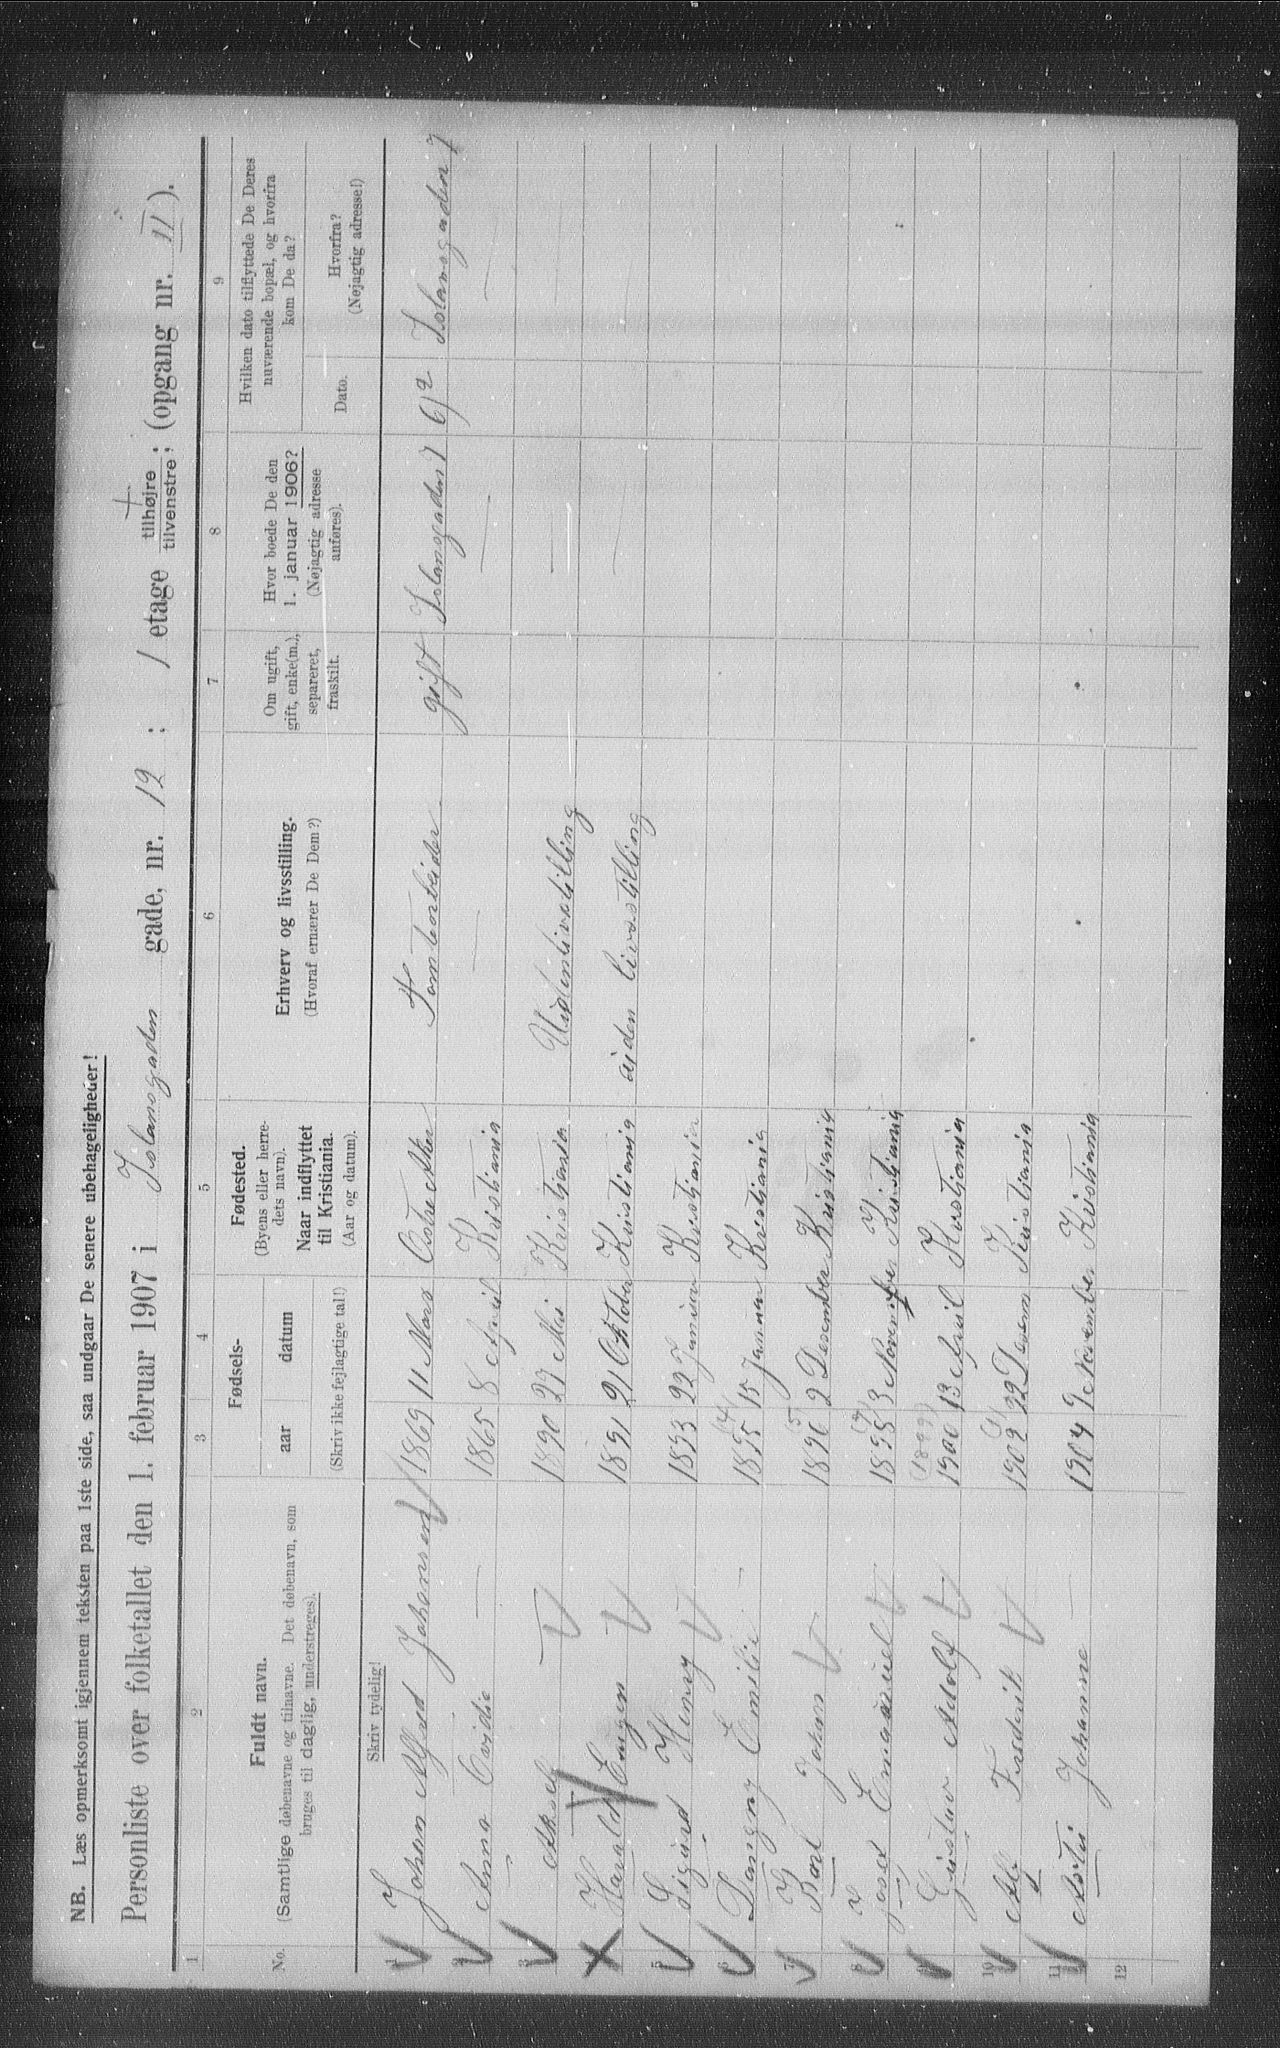 NB. Læs opmerksomt igjennem teksten paa 1ste side, saa undgaar De senere ubehageligheder!
Personliste over folketallet den 1. februar 1907 i Tolamsgaden gade, nr. 12 ; 1 etage tilhøjre / tilvenstre ; (opgang nr. II).
1 2 3 4 5 6 7 8 9
No.
Fuldt navn.
(Samtlige døbenavne og tilnavne. Det døbenavn, som
bruges til daglig, understreges).
Skriv tydelig!
Fødsels-
aar datum
(Skriv ikke fejlagtige tal!)
Fødested.
(Byens eller herre-
dets navn).
Naar indflyttet
til Kristiania.
(Aar og datum).
Erhverv og livsstilling.
(Hvoraf ernærer De Dem?)
Om ugift,
gift, enke(m.),
separeret,
fraskilt.
Hvor boede De den
1. januar 1906?
(Nøjagtig adresse
anføres).
Hvilken dato tilflyttede De Deres
nuværende bopæl, og hvorfra
kom De da?
Dato.
Hvorfra?
(Nøjagtig adresse!)
1 Johan Alfred Johansen 1869 11 Mars Østre Aker Tomtearbeider gift 7 6/2 7
2 Anna — 1865 8 April Kristiania — — —
3 Aksel — 1890 27 Mai Kristiania Uden livstilling — —
4 Harald Eugen 1891 21 Oktober Kristiania uden livsstilling —
5 Sigurd Henry 1893 22 Januar Kristiania
6 Dangny Emilie — 1895 (4) 15 Januar Kristiania
7 Karl Johan 1896 (5) 2 Desember Kristiania
8 Josef Emanuel 1898 3 November Kristiania
9 Gustav Adolf 1900 (1899) 13 April Kristiania
10 Alf Fredrik 1902 (1) 22 Desem Kristiania
11 Astri Johanne — 1904 9 November Kristiania
12